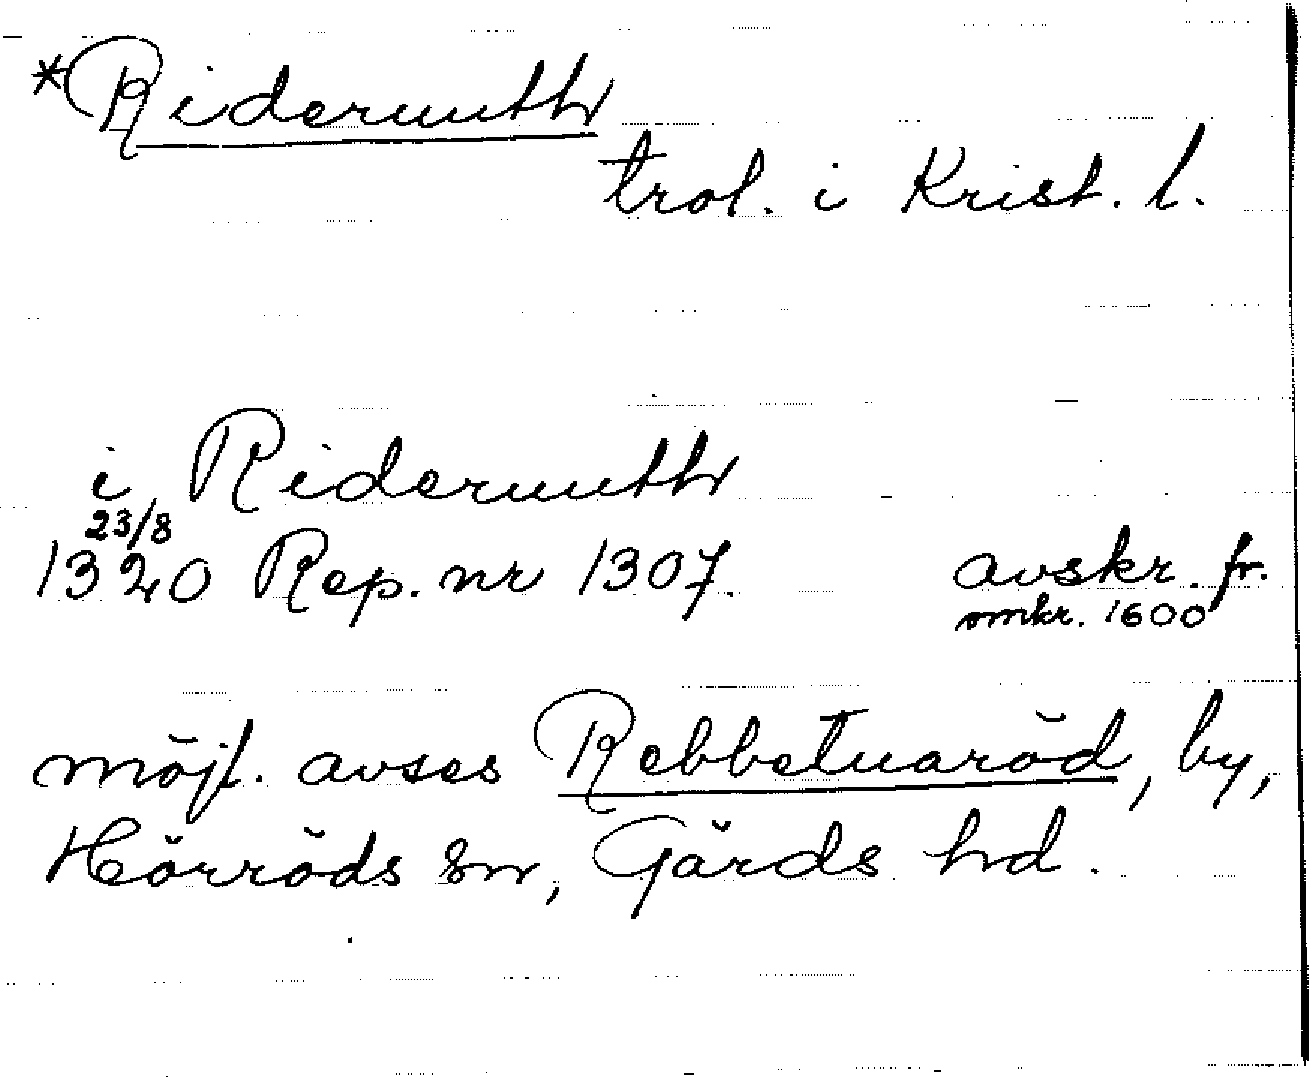 *Riderwuth
trol. i Krist. l.
i Riderwuth
23/8
1320 Rep. nr 1307. avskr. fr.
omkr. 1600
möjl. avses Rebbetuaröd, by,
Hörröds sn, Gärds hd.